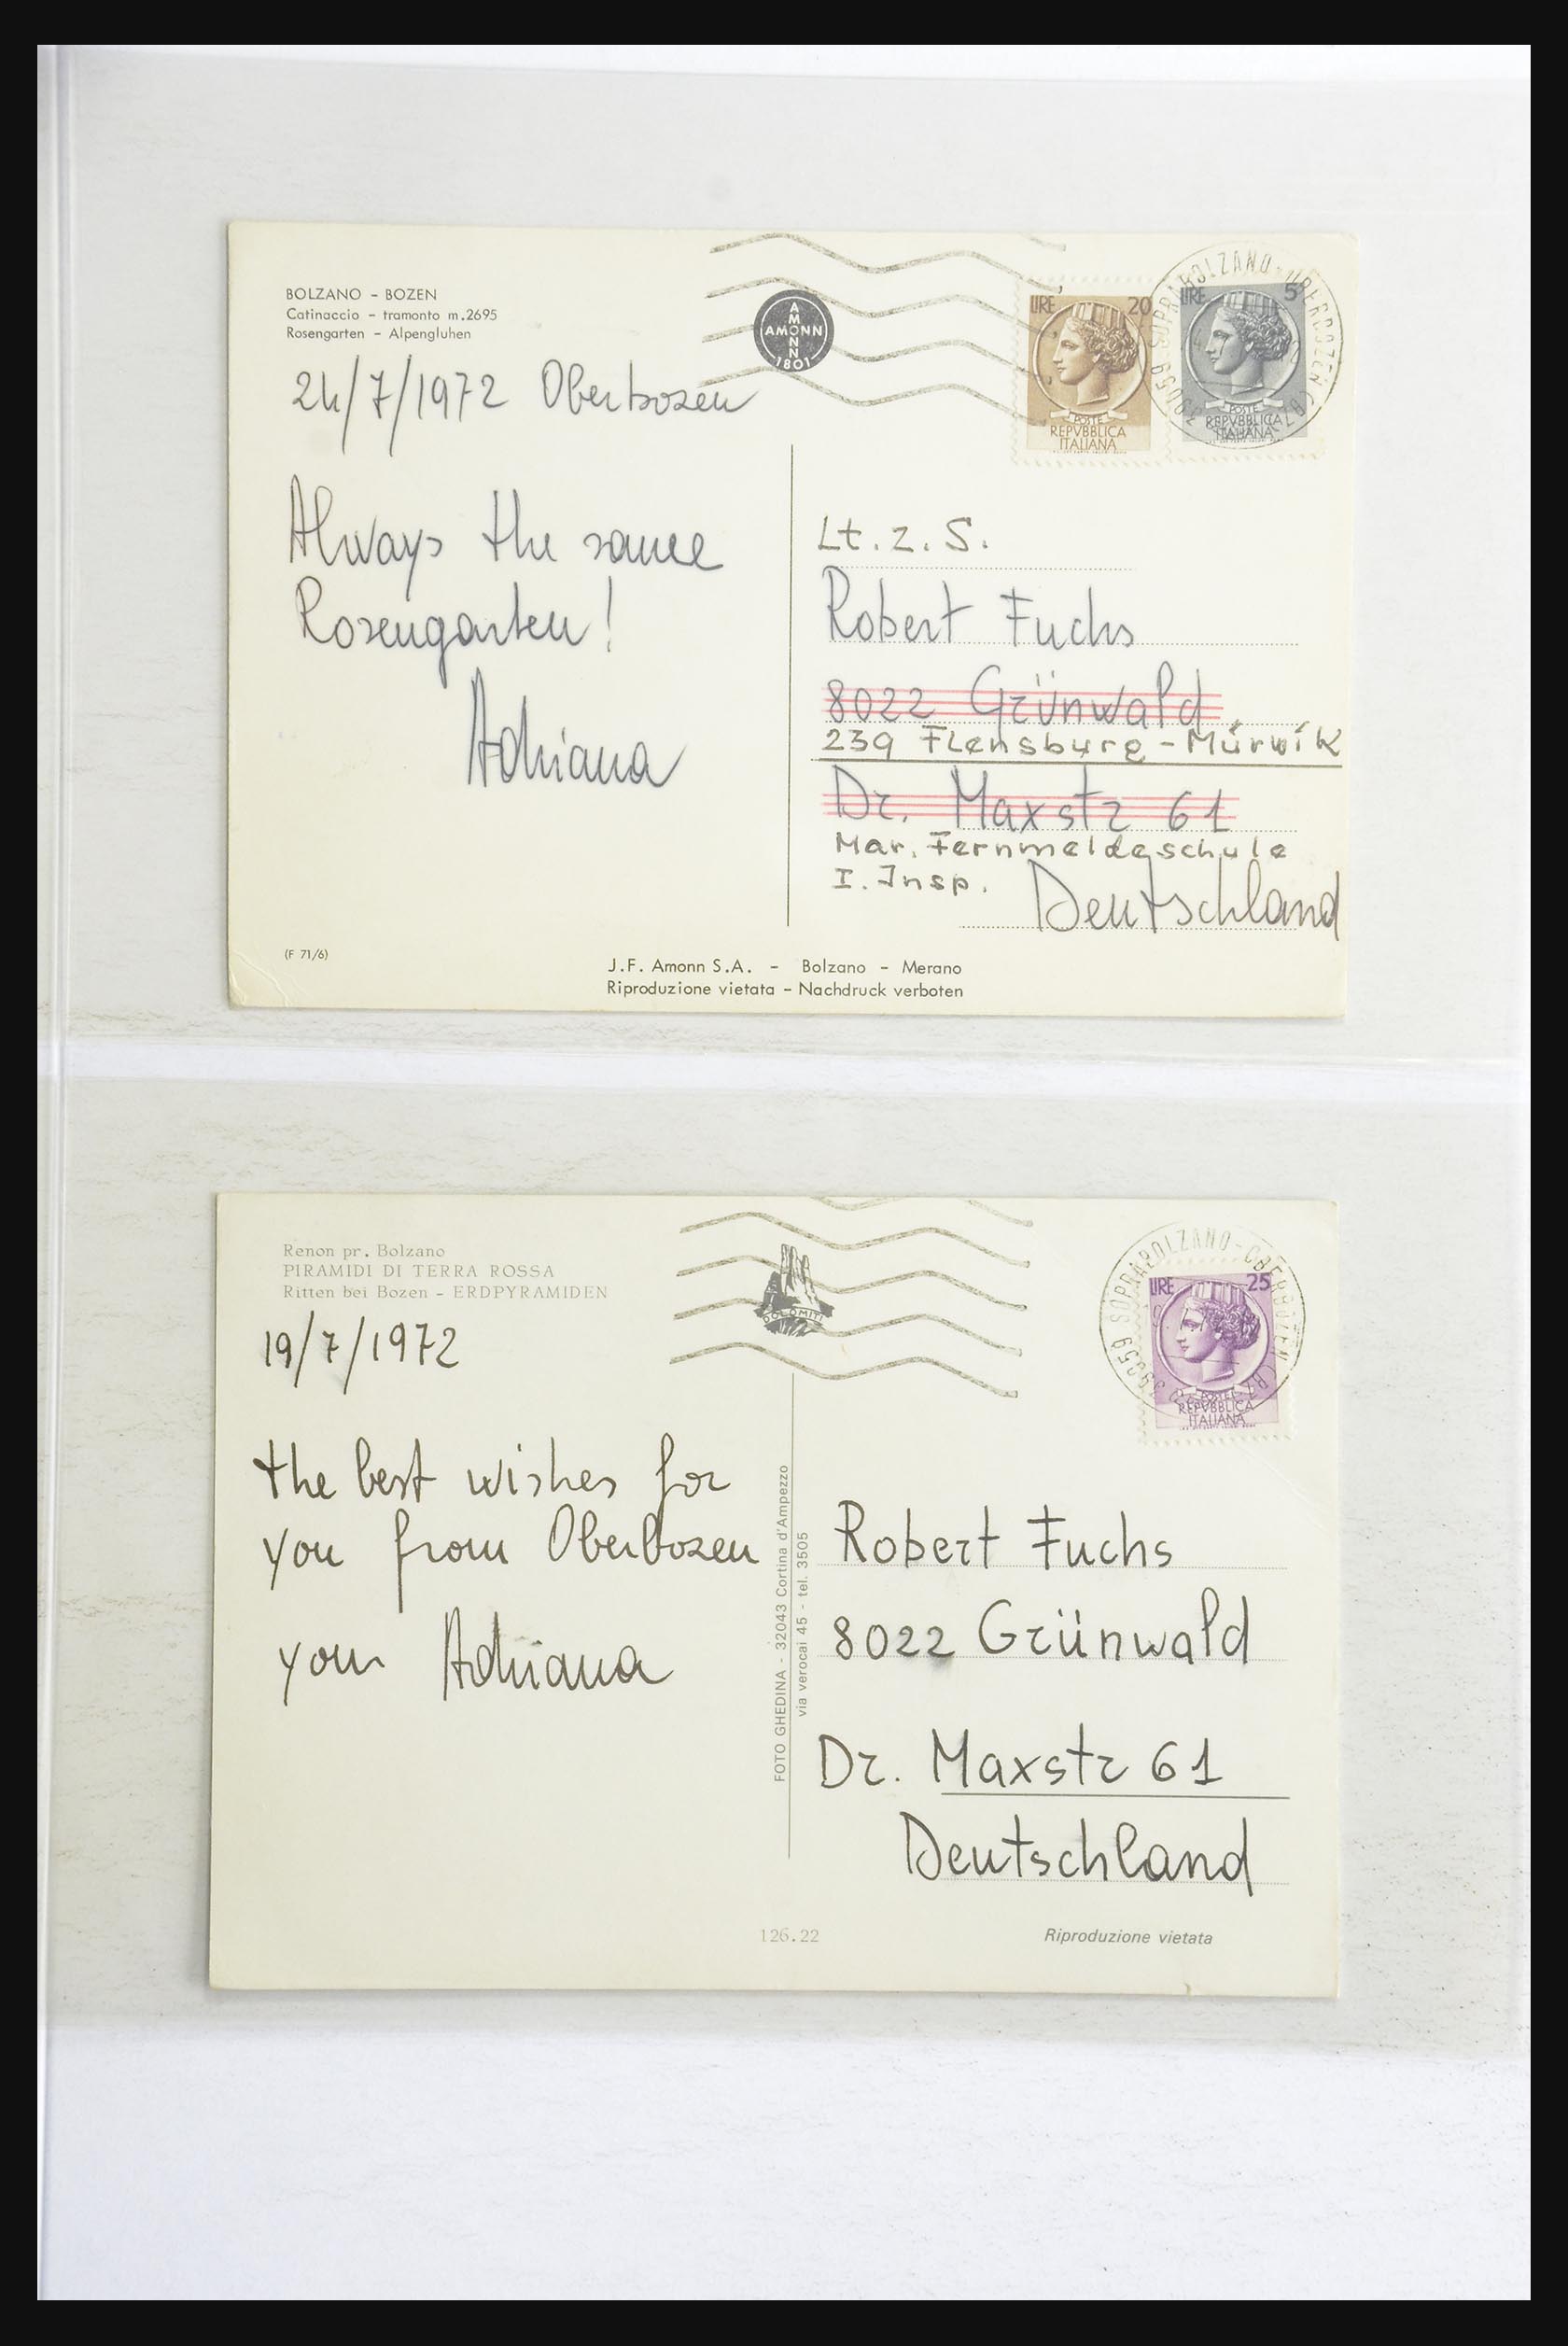 BOLZANO - BOZEN
Catinaccio - tramonto m.2695
Rosengarten - Alpengluhen
24/7/1972 Oberbozen
Always the same
Rosengarten!
Adriana
(F 71/6)
AMONN
AMONN
1801
LIRE 20
POSTE
REPVBBLICA
ITALIANA
LIRE 5
POSTE
REPVBBLICA
ITALIANA
39059 SOPRABOLZANO-OBERBOZEN (BZ)
Lt. z. S.
Robert Fuchs
8022 Grünwald
239 Flensburg - Mürwik
Dr. Maxstr 61
Mar. Fernmeldeschule
I. Insp.
Deutschland
J.F. Amonn S.A. - Bolzano - Merano
Riproduzione vietata - Nachdruck verboten
Renon pr. Bolzano
PIRAMIDI DI TERRA ROSSA
Ritten bei Bozen - ERDPYRAMIDEN
19/7/1972
the best wishes for
you from Oberbozen
your Adriana
DOLOMITI
FOTO GHEDINA - 32043 Cortina d'Ampezzo
via verocai 45 - tel. 3505
39059 SOPRABOLZANO-OBERBOZEN (BZ)
LIRE 25
POSTE
REPVBBLICA
ITALIANA
Robert Fuchs
8022 Grünwald
Dr. Maxstr 61
Deutschland
126.22
Riproduzione vietata